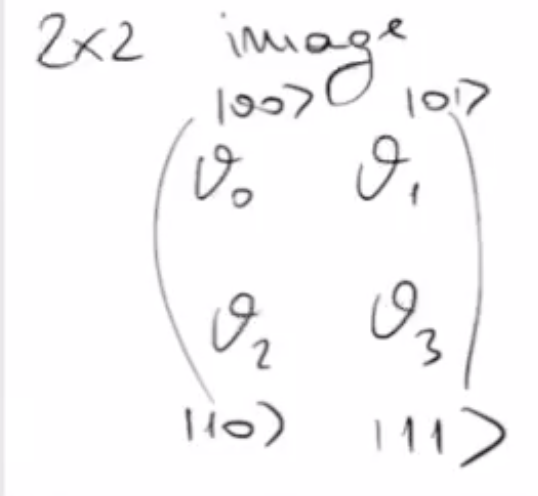 2x2 image
|00> |01>
ϑ₀ ϑ₁
ϑ₂ ϑ₃
|10> |11>